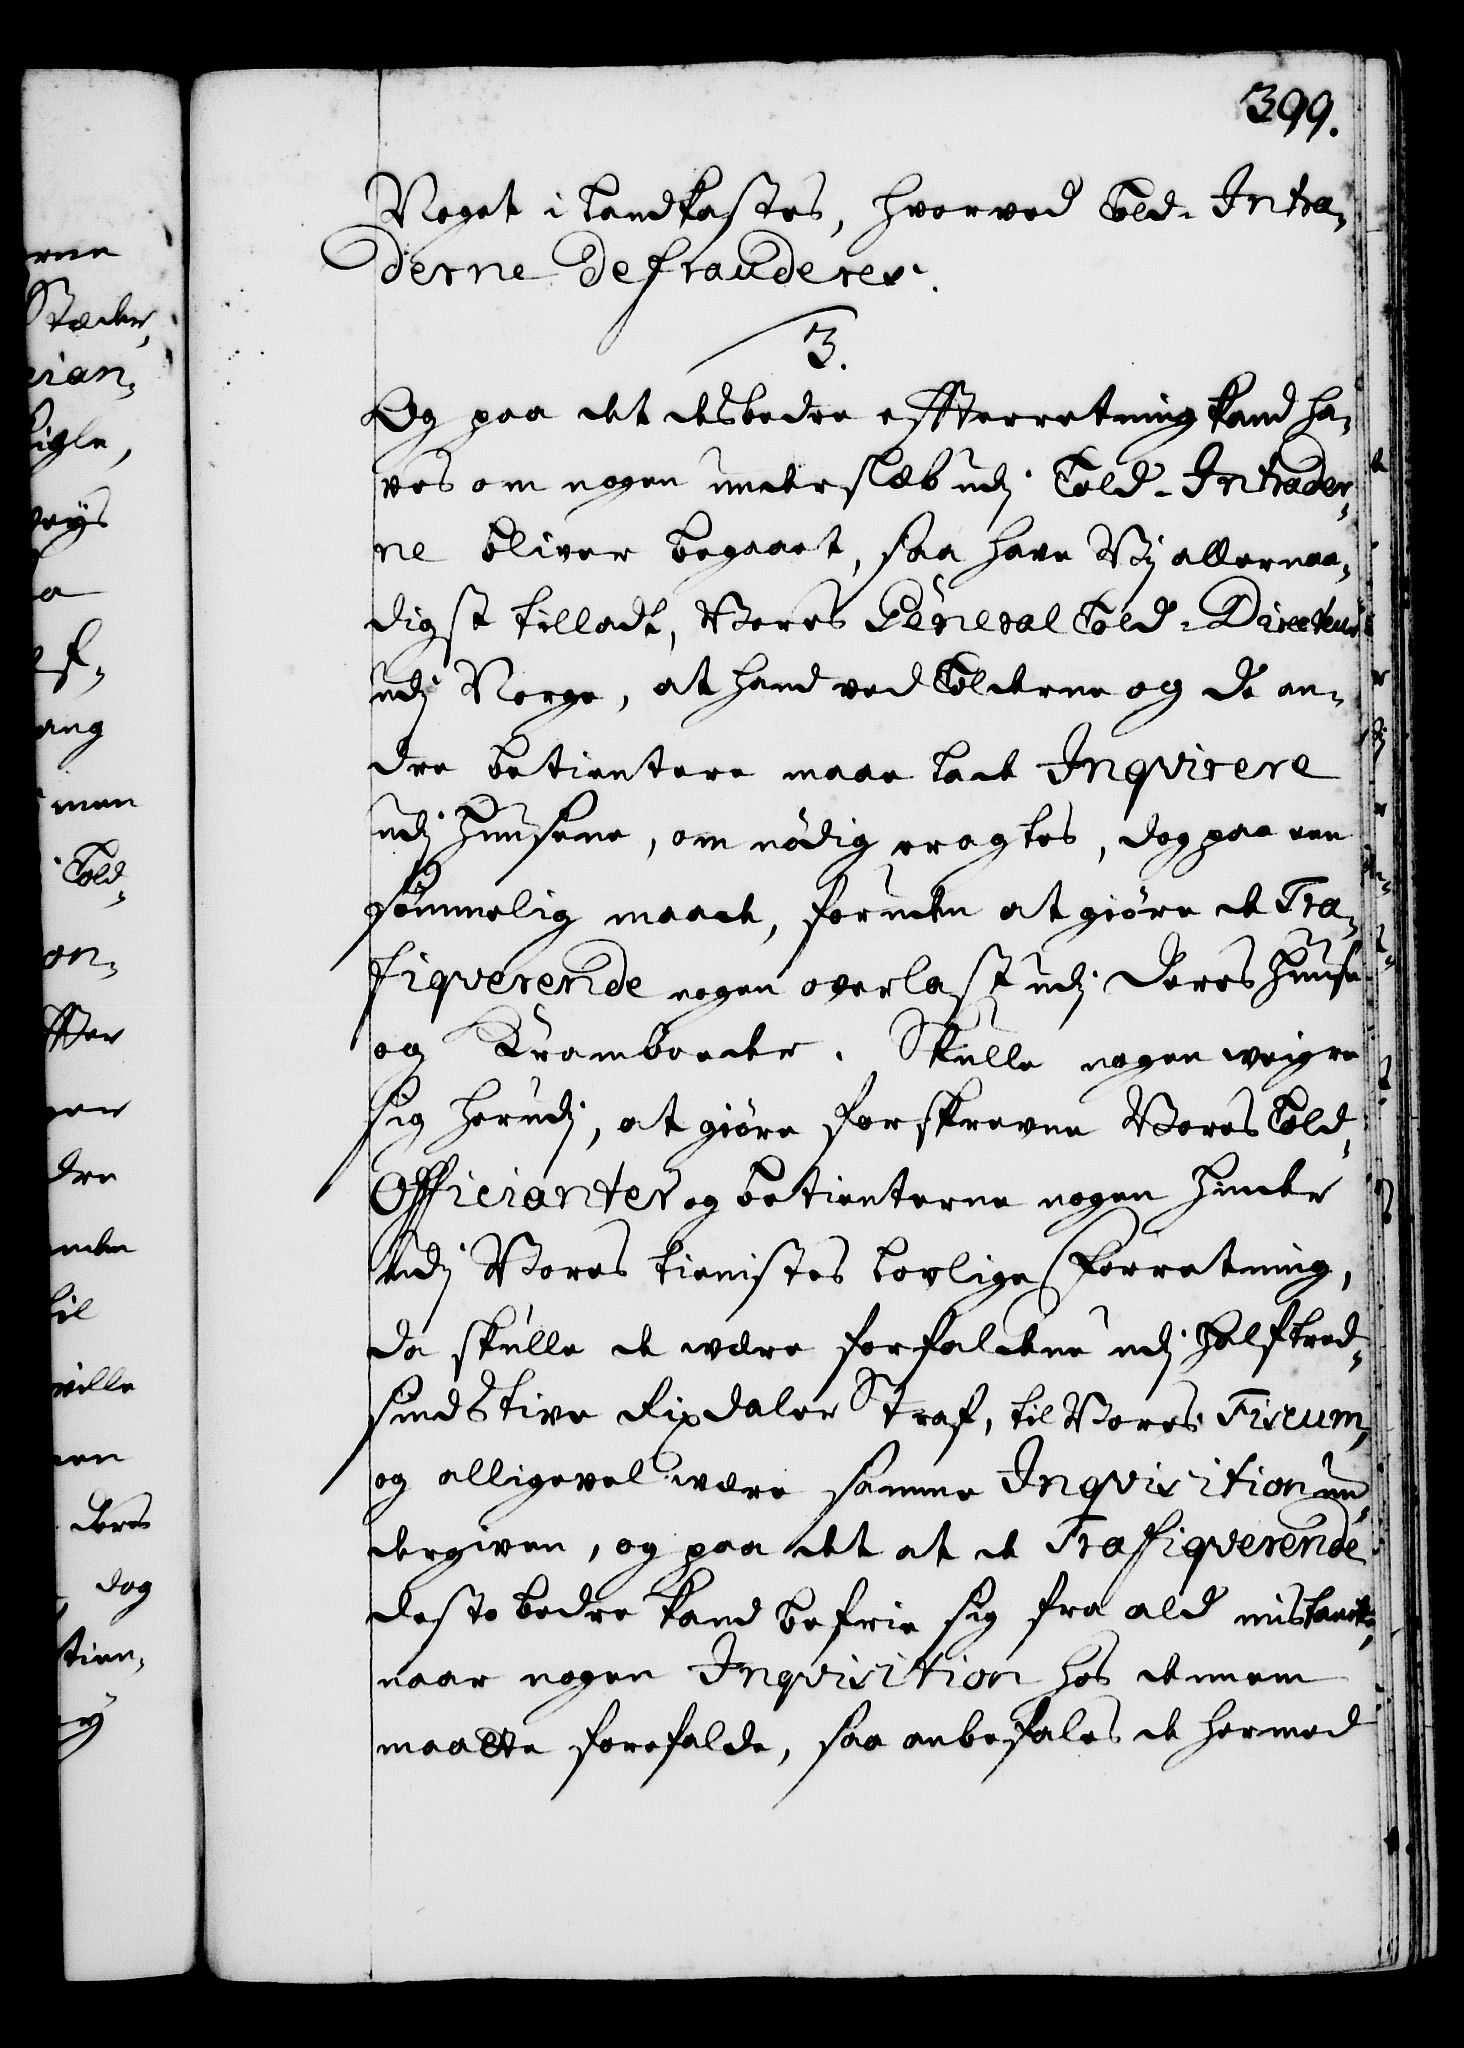 399.
Noget i land kastes, hvorved Told-Intra-
derne defrauderes.
3.
Og paa det desbedre effterretning kand ha-
ves om nogen underslæb udj Told-Intrader-
ne bliver begaaet, saa have Vij allernaa-
digst tilladt, Vores General Told-Directeur
udj Norge, at hand ved Tolderne og de an-
dre betientere maae lade Inqvirere
udj Huusene, om nödig eragtes, dog paa een
sömmelig maade, foruden at giöre de Tra-
fiqverende nogen overlast udj deres Huuse
og Kramboeder. Skulle nogen weigre
sig herudj, at giöre forskrevne Vores Told-
Officianter og betienterne nogen Hinder
udj Vores tienistes lovlige Forretning,
da skulle de være forfaldene udj Halftred-
sindstive Rixdaler Straf, til Vores Fiscum,
og alligevel være samme Inqvisition un-
dergiven, og paa det at de Trafiqverende
desto bedre kand befrie sig fra ald mistancke,
naar nogen Inqvisition hos dennem
maatte forefalde, saa anbefales de hermed
rne
Stæder,
cian-
ligle,
a
ang
men
Told-
on-
ffter
dre
nden
til
ville
deres
dog
tien-